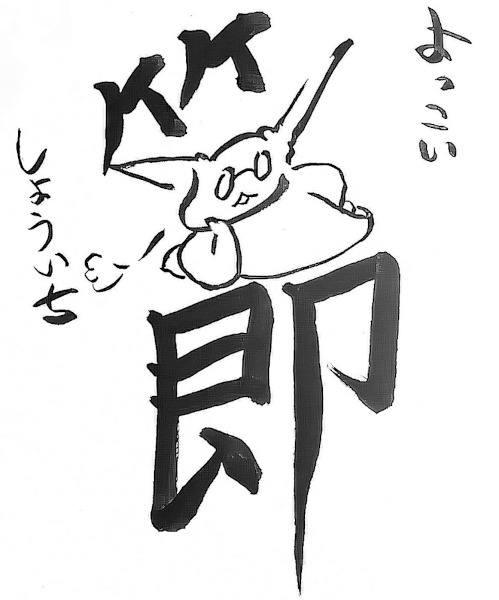 よっこい
しょういち
節